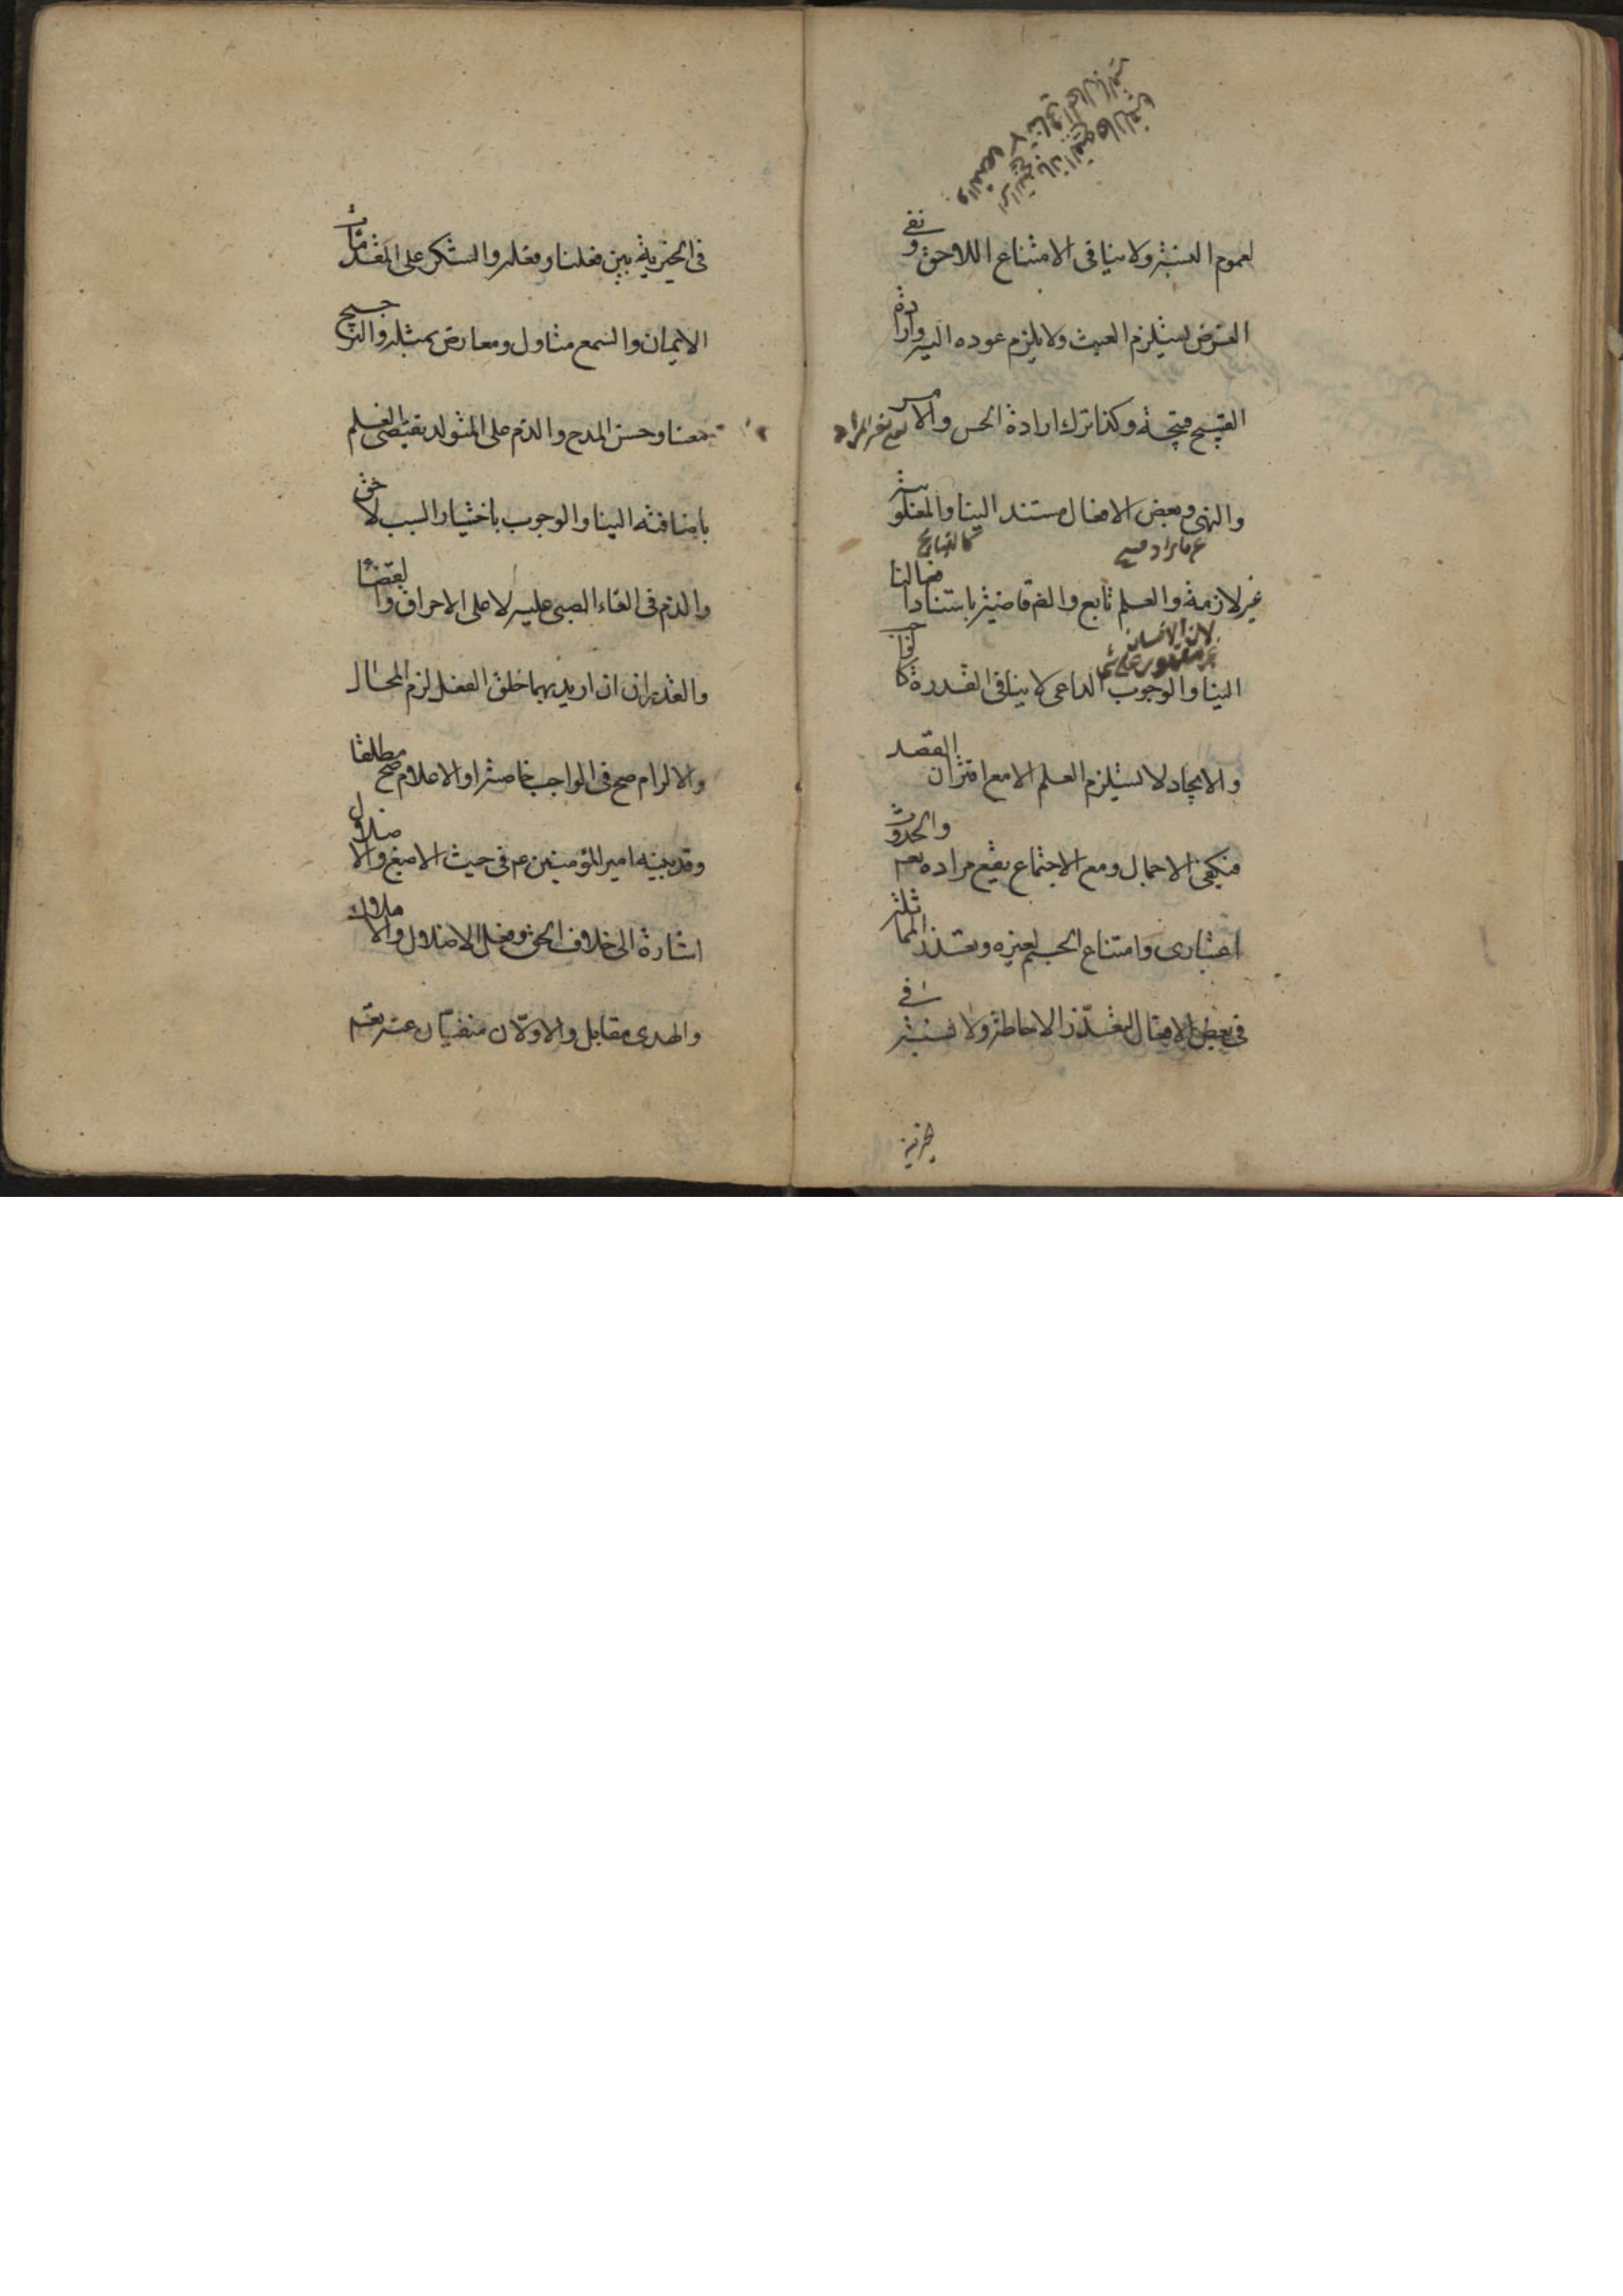 لعموم النسبة ولا ينافي الامتناع اللاحق ونفي
الغرض يستلزم العبث ولا يلزم عوده اليه وارادة
القبيح قبيحة وكذا ترك ارادة الحسن والامر
والنهي وبعض الافعال مستند الينا والمغلوبية
غير لازمة والعلم تابع والضرورة قاضية باستناد افعالنا
الينا والوجوب للداعي لا ينافي القدرة كالواجب
والايجاد لا يستلزم العلم الا مع اقتران القصد
فيكفي الاجمال ومع الاجتماع يقع مراده تعم والحدوث
اعتباري وامتناع الجسم لغيره وتعذر المماثلة
في بعض الافعال لتعذر الاحاطة ولا نسبة في
خيرية
في الخيرية بين فعلنا وفعله والشكر على مقدمات
الايمان والسمع متاول ومعارض بمثله والترجيح
معنا وحسن المدح والذم على المتولد يقتضي العلم
باضافته الينا والوجوب باختيار السبب لاحق
والذم في القاء الصبي عليه لا على الاحراق والقضاء
والقدر ان اريد بهما خلق الفعل لزم المحال
والالزام صح في الواجب خاصة او الاعلام صح مطلقا
وقد بينه امير المؤمنين عم في حيث الاصبغ والاضلال
اشارة الى خلاف الحق وفعل الاضلال والاهلاك
والهدى مقابل والاولان منفيان عنه تعم